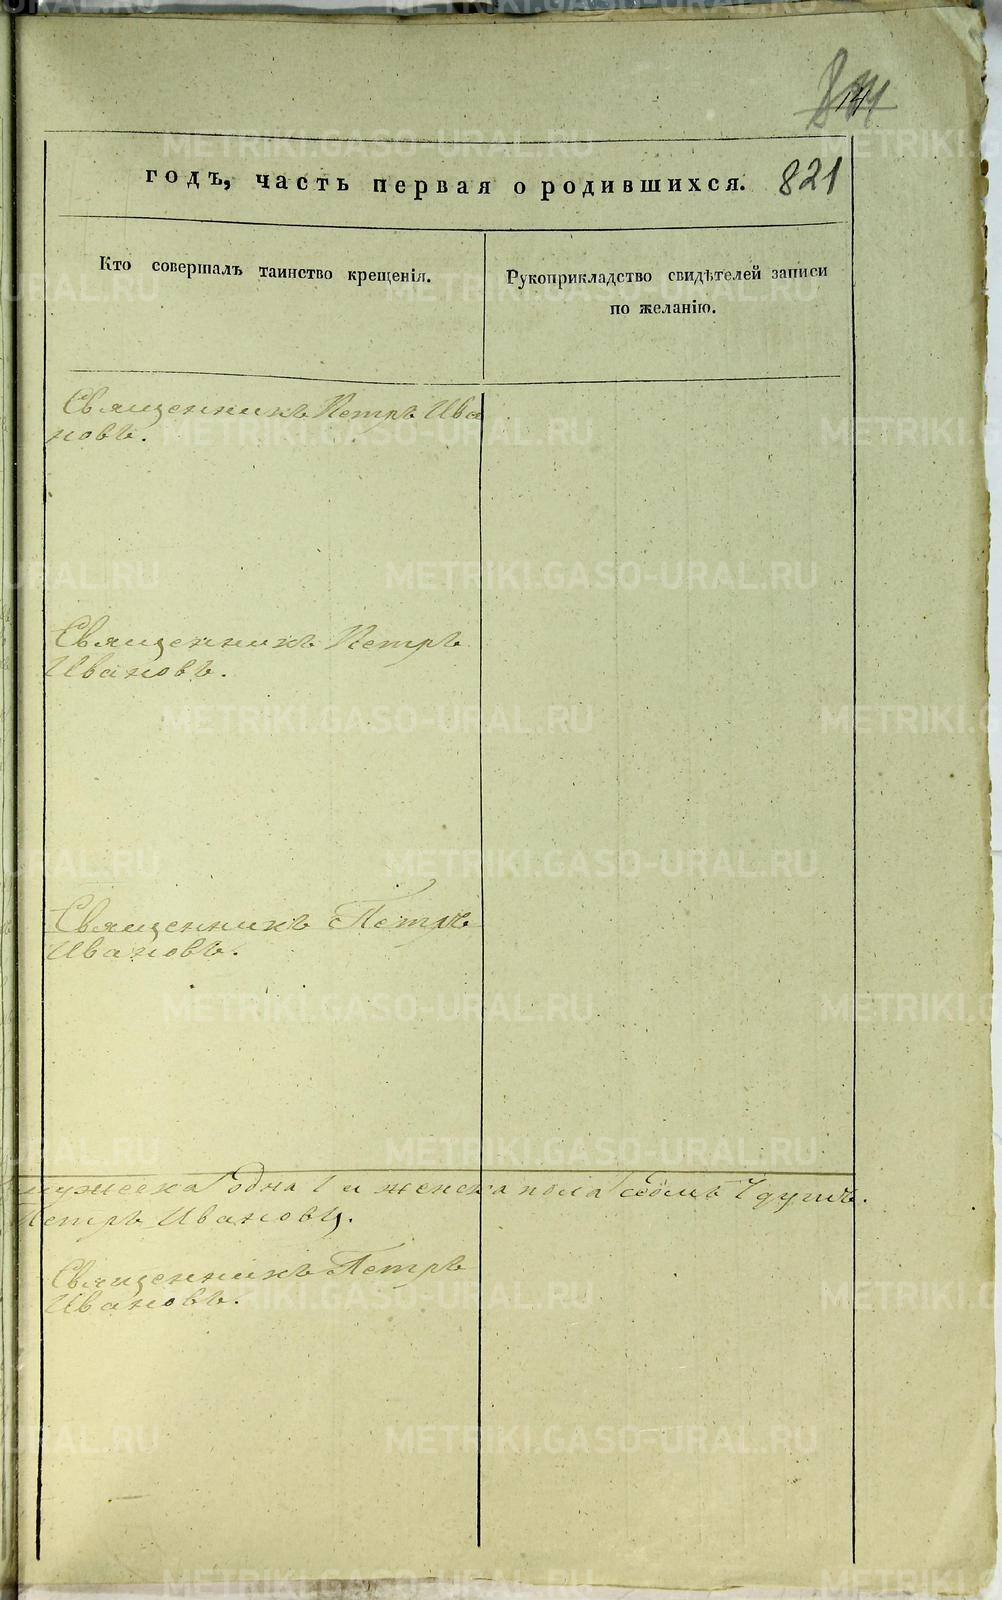 годъ, часть первая о родившихся. 821
Кто совершалъ таинство крещенія.
Рукоприкладство свидѣтелей записи
по желанію.
Священникъ Петръ Ива
новъ.
Священникъ Петръ
Ивановъ.
Священникъ Петръ
Ивановъ.
мужеска одна 1 и женска пола семь 7 душъ.
Петръ Ивановъ.
Священникъ Петръ
Ивановъ.
METRIKI.GASO-URAL.RU